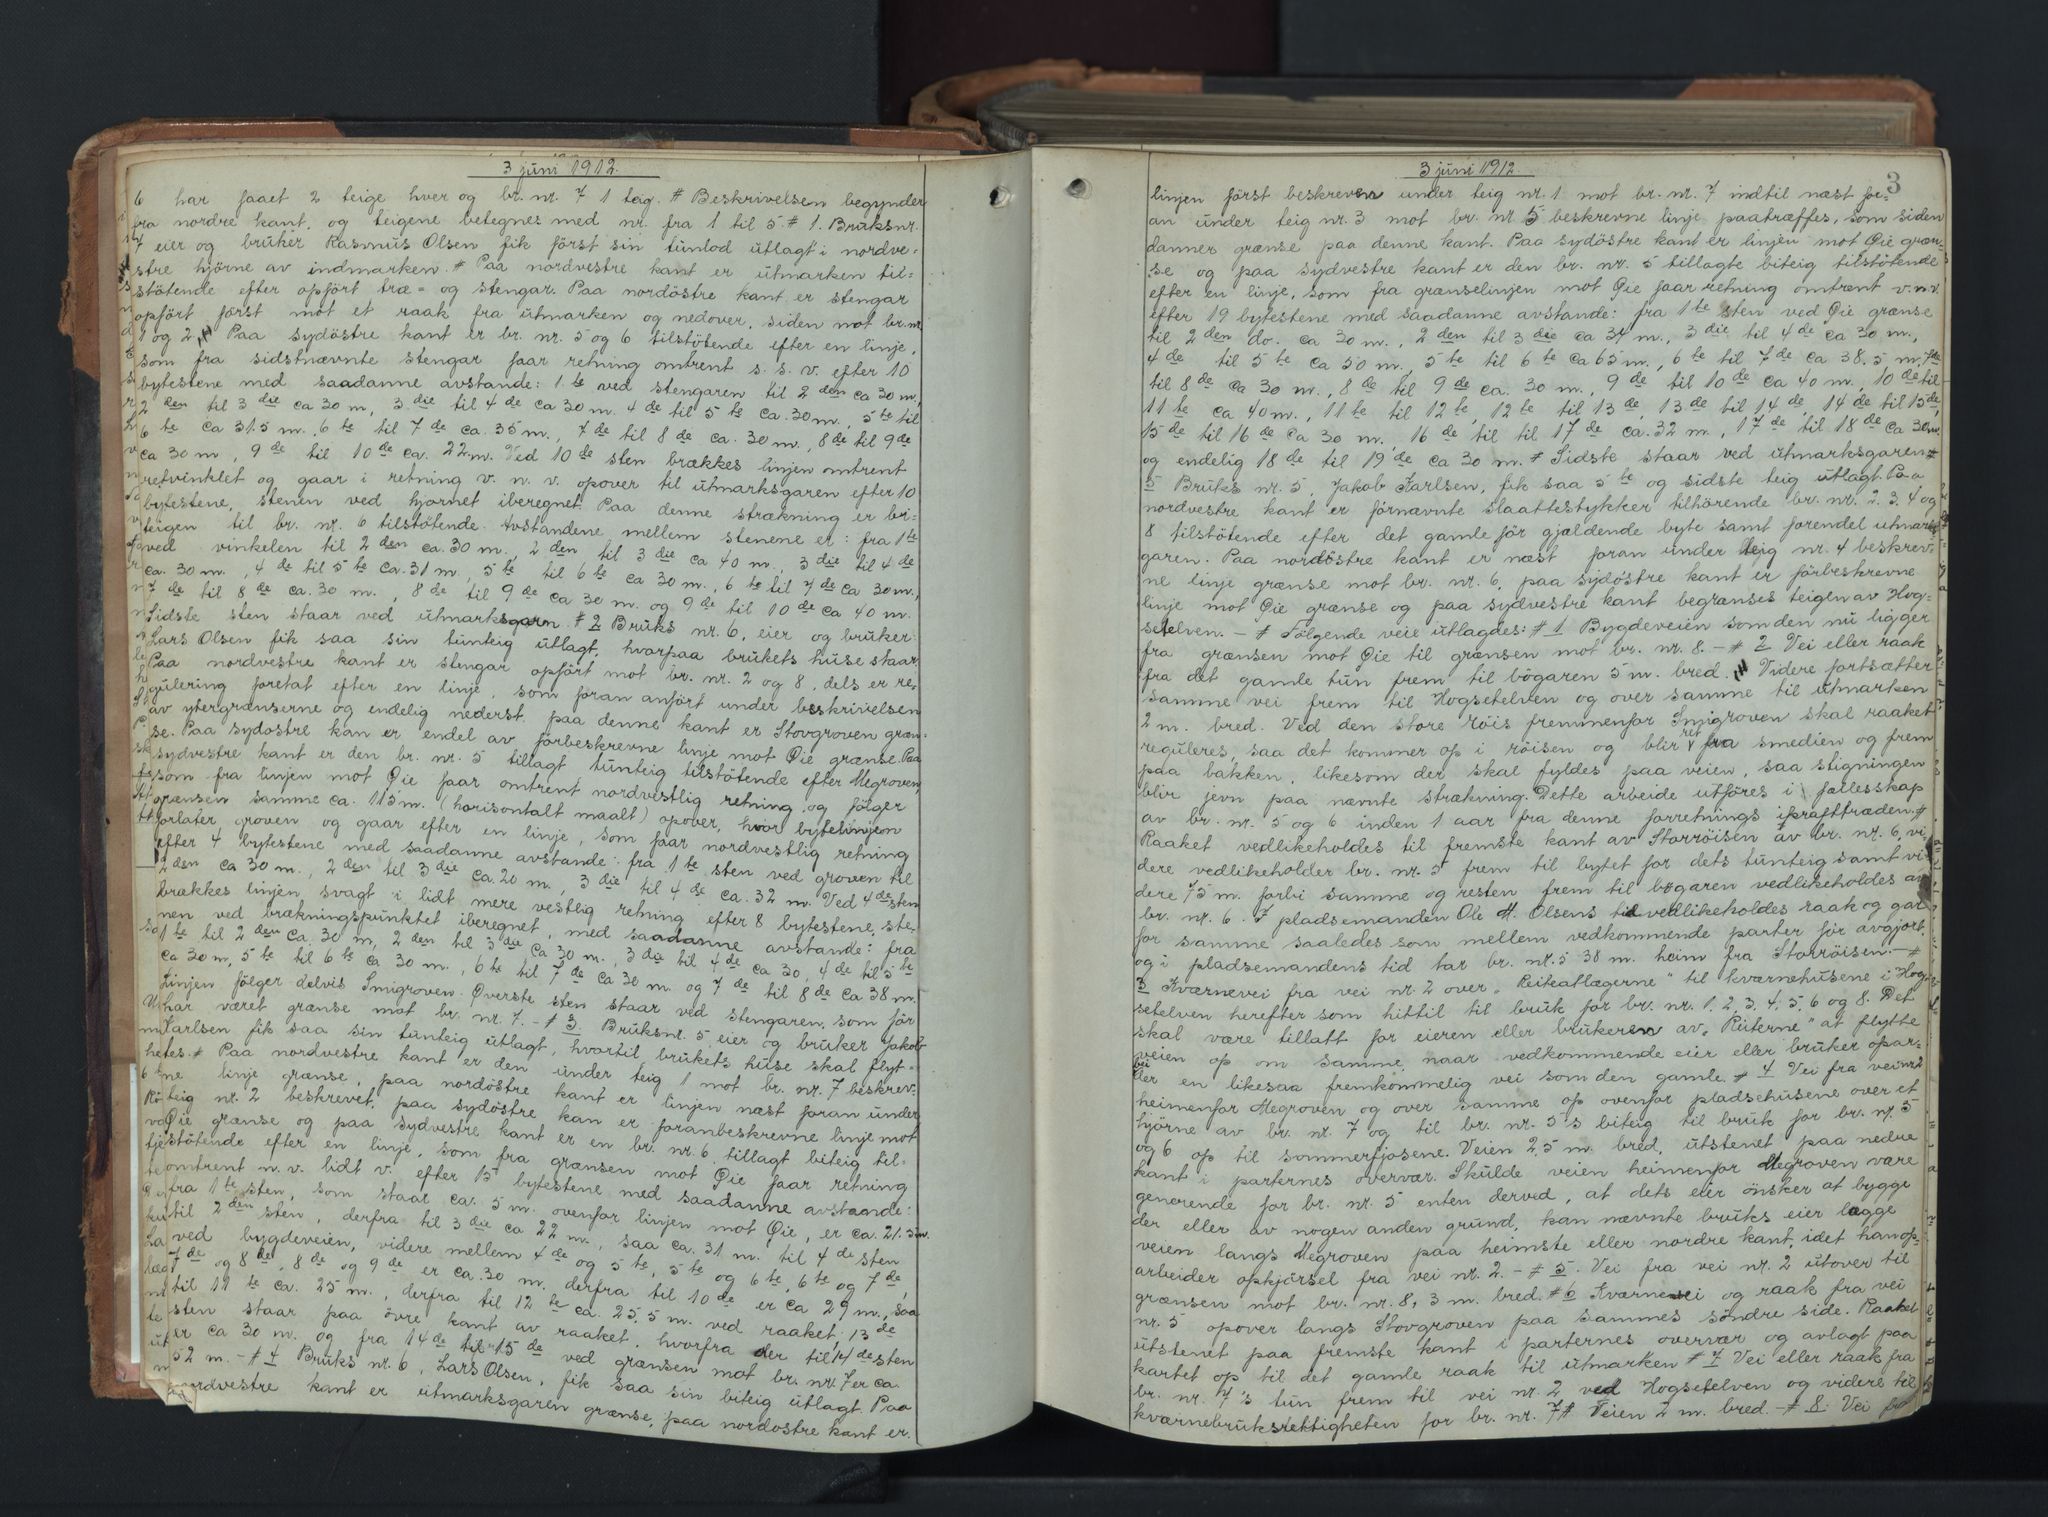 3 juni 1912.
6 har faaet 2 teige hver og br. nr. 7 1 teig. # Beskrivelsen begynder
fra nordre kant, og teigene betegnes med nr. fra 1 til 5 # 1. Bruksnr.
7 eier og bruker Rasmus Olsen fik först sin tunlod utlagt i nordve-
stre hjörne av indmarken. # Paa nordvestre kant er utmarken til-
stötende efter opfört træ- og stengar. Paa nordöstre kant er stengar
opfört först mot et raak fra utmarken og nedover, siden mot br. nr.
1 og 2. Paa sydöstre kant er br. nr. 5 og 6 tilstötende efter en linje,
som fra sidstnævnte stengar faar retning omtrent s. s. v. efter 10
bytestene med saadanne avstande: 1.te ved stengaren til 2den ca 30 m,
2den til 3die ca 30 m, 3die til 4de ca 30 m. 4de til 5te ca. 30 m, 5te til
6te ca 31.5 m, 6te til 7de ca. 35 m., 7de til 8de ca. 30 m, 8de til 9de
ca 30 m, 9de til 10de ca. 22 m. Ved 10de sten brækkes linjen omtrent
retvinklet og gaar i retning v. n. v. opover til utmarksgaren efter 10
bytestene, stenen ved hjornet iberegnet. Paa denne strækning er bi-
teigen til br. nr. 6 tilstötende. Avstandene mellem stenene er: fra 1te
ved vinkelen til 2den ca. 30 m., 2den til 3die ca 40 m., 3die til 4de
ca. 30 m., 4de til 5te ca. 31 m., 5te til 6te ca 30 m., 6te til 7de ca 30 m.,
7de til 8de ca. 30 m., 8de til 9de ca 30 m. og 9de til 10de ca 40 m.
Sidste sten staar ved utmarksgaren. # 2 Bruks nr. 6, eier og bruker
Lars Olsen fik saa sin tunteig utlagt, hvorpaa brukets huse staar.
Paa nordvestre kant er stengar opfört mot br. nr. 2 og 8, dels er re-
gulering foretat efter en linje, som foran anfört under beskrivelsen
av ytergrænserne og endelig nederst paa denne kant er Stovgroven græn-
se. Paa sydostre kan er endel av förbeskrevne linje mot Öie grænse. Paa
sydvestre kant er den br. nr. 5 tillagt tunteig tilstötende efter Megroven,
som fra linjen mot Öie faar omtrent nordvestlig retning, og fölger
grænsen samme ca. 115 m. (horisontalt maalt) opover, hvor bytelinjen
forlater groven og gaar efter en linje, som faar nordvestlig retning
efter 4 bytestene med saadanne avstande: fra 1te sten ved groven til
2den ca 30 m., 2den til 3die ca. 20 m., 3die til 4de ca. 32 m. Ved 4de sten
brækkes linjen svagt i lidt mere vestlig retning efter 8 bytestene, ste-
nen ved brækningspunktet iberegnet, med saadanne avstande: fra
1te til 2den ca. 30 m, 2den til 3die ca 30 m., 3die til 4de ca 30, 4de til 5te
ca 30 m, 5te til 6te ca 30 m., 6te til 7de ca 30 m. og 7de til 8de ca 38 m.
Linjen fölger delvis Smigroven. Överste sten staar ved stengaren, som för
har været grænse mot br. nr. 7. - # 3. Bruksnr. 5 eier og bruker Jakob
Karlsen fik saa sin tunteig utlagt, hvortil brukets huse skal flyt-
tes. # Paa nordvestre kant er den under teig 1 mot br. nr. 7 beskrev-
ne linje grænse, paa nordöstre kant er linjen næst foran under
teig nr. 2 beskrevet, paa sydöstre kan er foranbeskrevne linje mot
Öie grænse og paa sydvestre kant er en br. nr. 6 tillagt biteig til-
stötende efter en linje, som fra grænsen mot Öie faar retning
omtrent n. v. lidt v. efter 15 bytestene med saadanne avstande:
fra 1te sten, som staar ca. 5 m. ovenfor linjen mot Öie, er ca. 21.5 m.
til 2den sten, derfra til 3die ca 22 m., saa ca. 31 m. til 4de sten
ved bygdeveien, videre mellem 4de og 5te, 5te og 6te, 6te og 7de,
7de og 8de, 8de og 9de er ca. 30 m. derfra til 10de er ca 29 m., saa
til 11te ca. 25 m., derfra til 12te ca. 25.5 m. ved raaket; 13de
sten staar paa övre kant av raaket, hvorfra der til 14de sten
er ca 30 m. og fra 14de til 15de ved grænsen mot br. nr. 7 er ca.
52 m. - # 4 Bruks nr. 6, Lars Olsen, fik saa sin biteig utlagt. Paa
nordvestre kant er utmarksgaren grænse, paa nordostre kant er
3 juni 1912
3
linjen först beskreven under teig nr. 1 mot br. nr. 7 indtil næst for-
an under teig nr. 3 mot br. nr 5 beskrevne linje paatræffes, som siden
danner grænse paa denne kant. Paa sydöstre kant er linjen mot Öie græn-
se og paa sydvestre kant er den br. nr. 5 tillagte biteig tilstötende
efter en linje, som fra grænselinjen mot Öie faar retning omtrent v. n. v.
efter 19 bytestene med saadanne avstande: fra 1te sten ved Öie grænse
til 2den do. ca 30 m., 2den til 3die ca 34 m., 3die til 4de ca 30 m.,
4de til 5te ca 50 m., 5te til 6te ca 65 m., 6te til 7de ca 38.5 m, 7de
til 8de ca 30 m., 8de til 9de ca. 30 m., 9de til 10de ca 40 m., 10de til
11te ca 40 m., 11te til 12te, 12te til 13de, 13de til 14de, 14de til 15de,
15de til 16de ca 30 m., 16de til til 17de ca. 32 m., 17de til 18de ca 30 m.
og endelig 18de til 19de ca 30 m. # Sidste staar ved utmarksgaren #
5 Bruks nr. 5, Jakob Karlsen, fik saa 5te og sidste teig utlagt. Paa
nordvestre kant er förnævnte slaattestykker tilhörende br. nr. 2. 3. 4 og
8 tilstötende efter det gamle för gjældende byte samt forendel utmarks-
garen. Paa nordöstre kant er næst foran under teig nr. 4 beskrev-
ne linje grænse mot br. nr. 6, paa sydöstre kant er förbeskrevne
linje mot Öie grænse og paa sydvestre kant begrænses teigen av Hog-
setelven. - # Fölgende veie utlagdes: # 1 Bygdeveien som den nu ligger
fra grænsen mot Öie til grænsen mot br. nr. 8. - # 2 Vei eller raak
fra det gamle tun frem til bögaren 5 m. bred. Videre fortsætter
samme vei frem til Hogsetelven og over samme til utmarken
2 m. bred. Ved den store röis fremmenfor Smigroven skal raaket
reguleres, saa det kommer op i röisen og blir ret fra smedien og frem
paa bakken, likesom der skal fyldes paa veien, saa stigningen
blir jevn paa nævnte strækning. Dette arbeide utföres i fællesskap
av br. nr. 5 og 6 inden 1 aar fra denne forretnings ikrafttræden. #
Raaket vedlikeholdes til fremste kant av Storröisen av br. nr. 6, vi-
dere vedlikeholder br. nr. 5 frem til bytet for dets tunteig samt vi-
dere 75 m. forbi samme og resten frem til bögaren vedlikeholdes av
br. nr. 6. I pladsemanden Ole M. Olsens tid vedlikeholdes raak og gar
for samme saaledes som mellem vedkommende parter för avgjort,
og i pladsemandens tid tar br. nr. 5 38 m. heim fra Storröisen. - #
3 Kværnevei fra vei nr. 2 over "Reiteatlægerne" til kværnehusene i Hog-
setelven herefter som hittil til bruk for br. nr. 1. 2. 3. 4. 5. 6 og 8. Det
skal være tillatt for eieren eller brukeren av "Reiterne" at flytte
veien op om samme, naar vedkommende eier eller bruker opar-
bei
der en likesaa fremkommelig vei som den gamle. # 4 Vei fra vei nr 2
heimenfor Megroven og over samme op ovenfor pladsehusene over et
hjörne av br. nr. 7 og til br. nr. 5's biteig til bruk for br. nr. 5
og 6 op til sommerfjosene. Veien 2,5 m. bred, utstenet paa nedre
kant i parternes overvær. Skulde veien heimenfor Megroven være
generende for br. nr. 5 enten derved, at dets eier önsker at bygge
der eller av nogen anden grund, kan nævnte bruks eier lægge
veien langs Megroven paa heimste eller nordre kant, idet han op-
arbeider opkjörsel fra vei nr. 2. - # 5. Vei fra vei nr. 2 utover til
grænsen mot br. nr. 8, 3 m. bred. # 6 Kværnevei og raak fra vei
nr. 5 opover langs Stovgroven paa sammes söndre side. Raaket
utstenet paa fremste kant i parternes overvær og avlagt paa
kartet op til det gamle raak til utmarken # 7 Vei eller raak fra
br. nr. 7's tun frem til vei nr. 2 ved Hogsetelven og videre til
kværnebruksrettigheten for br. nr. 7 # Veien 2 m. bred - # 8. Vei fra